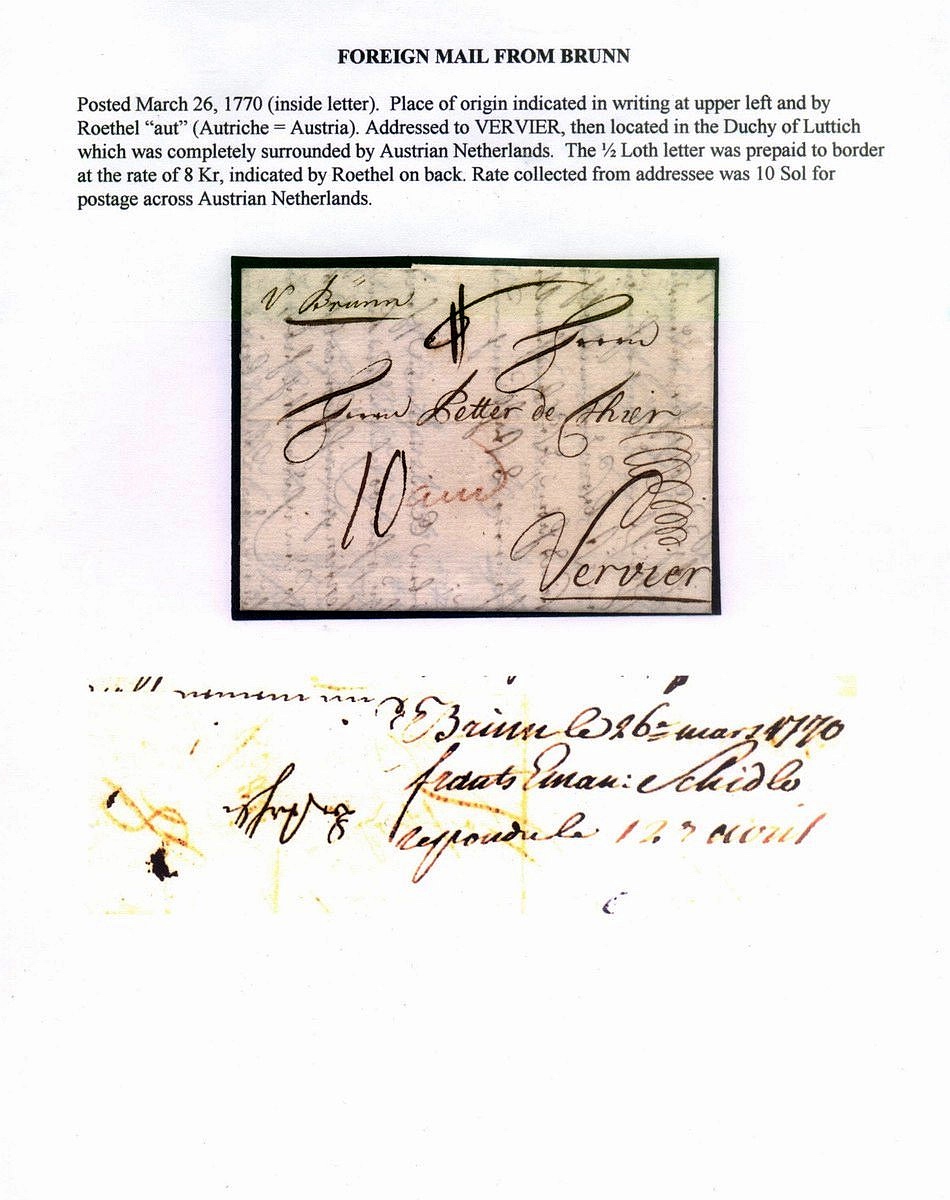 FOREIGN MAIL FROM BRUNN
Posted March 26, 1770 (inside letter). Place of origin indicated in writing at upper left and by
Roethel “aut” (Autriche = Austria). Addressed to VERVIER, then located in the Duchy of Luttich
which was completely surrounded by Austrian Netherlands. The ½ Loth letter was prepaid to border
at the rate of 8 Kr, indicated by Roethel on back. Rate collected from addressee was 10 Sol for
postage across Austrian Netherlands.
V Brünn
Herrn
Herrn Petter de Thier
10 aut
Vervier
Brünn le 26 mars 1770
frants Eman: Schidlo
repondu le 12 avril